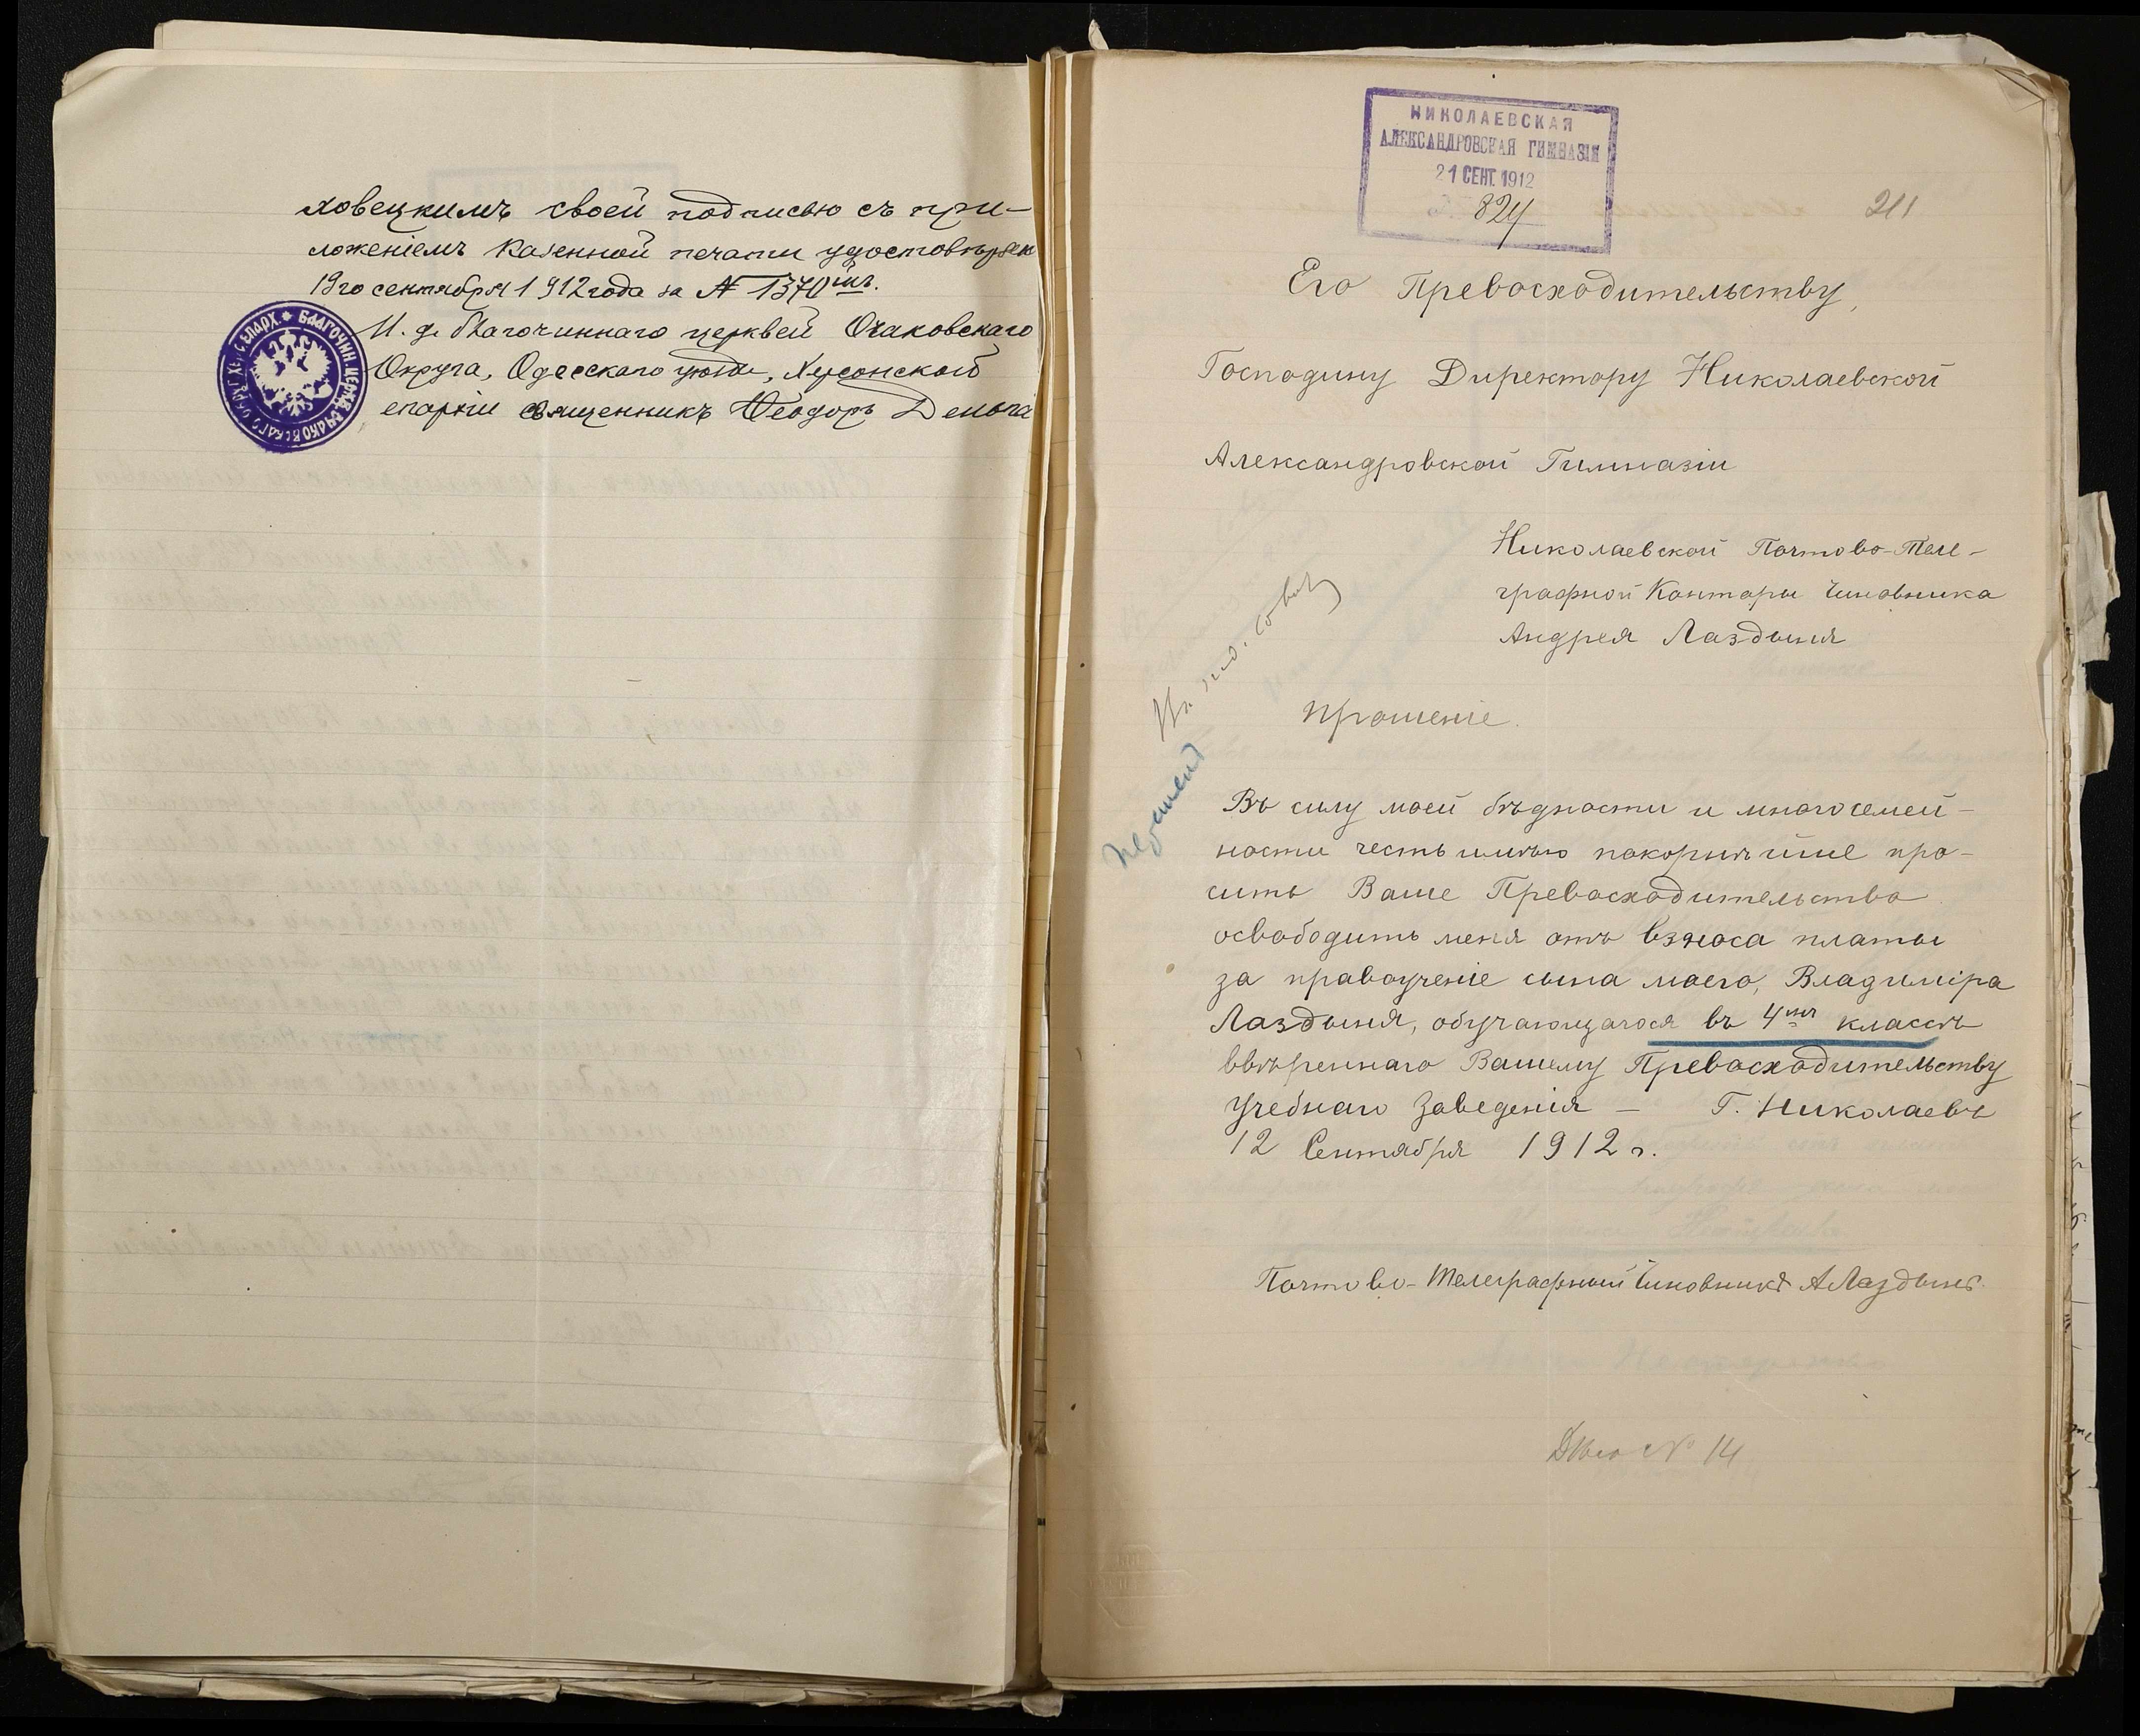 ховецкимъ своей подписью съ при-
ложеніемъ казенной печати удостовѣряю
19го сентября 1912 года за № 1370мъ.
И. д. благочиннаго церквей Очаковскаго
Округа, Одесскаго уѣзда, Херсонской
епархіи священникъ Ѳеодоръ
БЛАГОЧИН. ЦЕРКВ. ОЧАКОВСКАГО ОКРУГ. ХЕРС. ЕПАРХ.
НИКОЛАЕВСКАЯ
АЛЕКСАНДРОВСКАЯ ГИМНАЗІЯ
21 СЕНТ. 1912
824
211
Его Превосходительству,
Господину Директору Николаевской
Александровской Гимназіи
Николаевской Почтово-Теле-
графной Конторы Чиновника
Андрея Лаздыня
На пед. совѣтъ
Прошеніе.
Въ силу моей бѣдности и многосемей-
ности честь имѣю покорнѣйше про-
сить Ваше Превосходительство
освободить меня отъ взноса платы
за правоученіе сына моего, Владиміра
Лаздыня, обучающагося въ 4мъ классѣ
ввѣреннаго Вашему Превосходительству
учебнаго заведенія — Г. Николаевъ
12 Сентября 1912 г.
Почтово-Телеграфный Чиновникъ А Лаздынь
Дѣло № 14